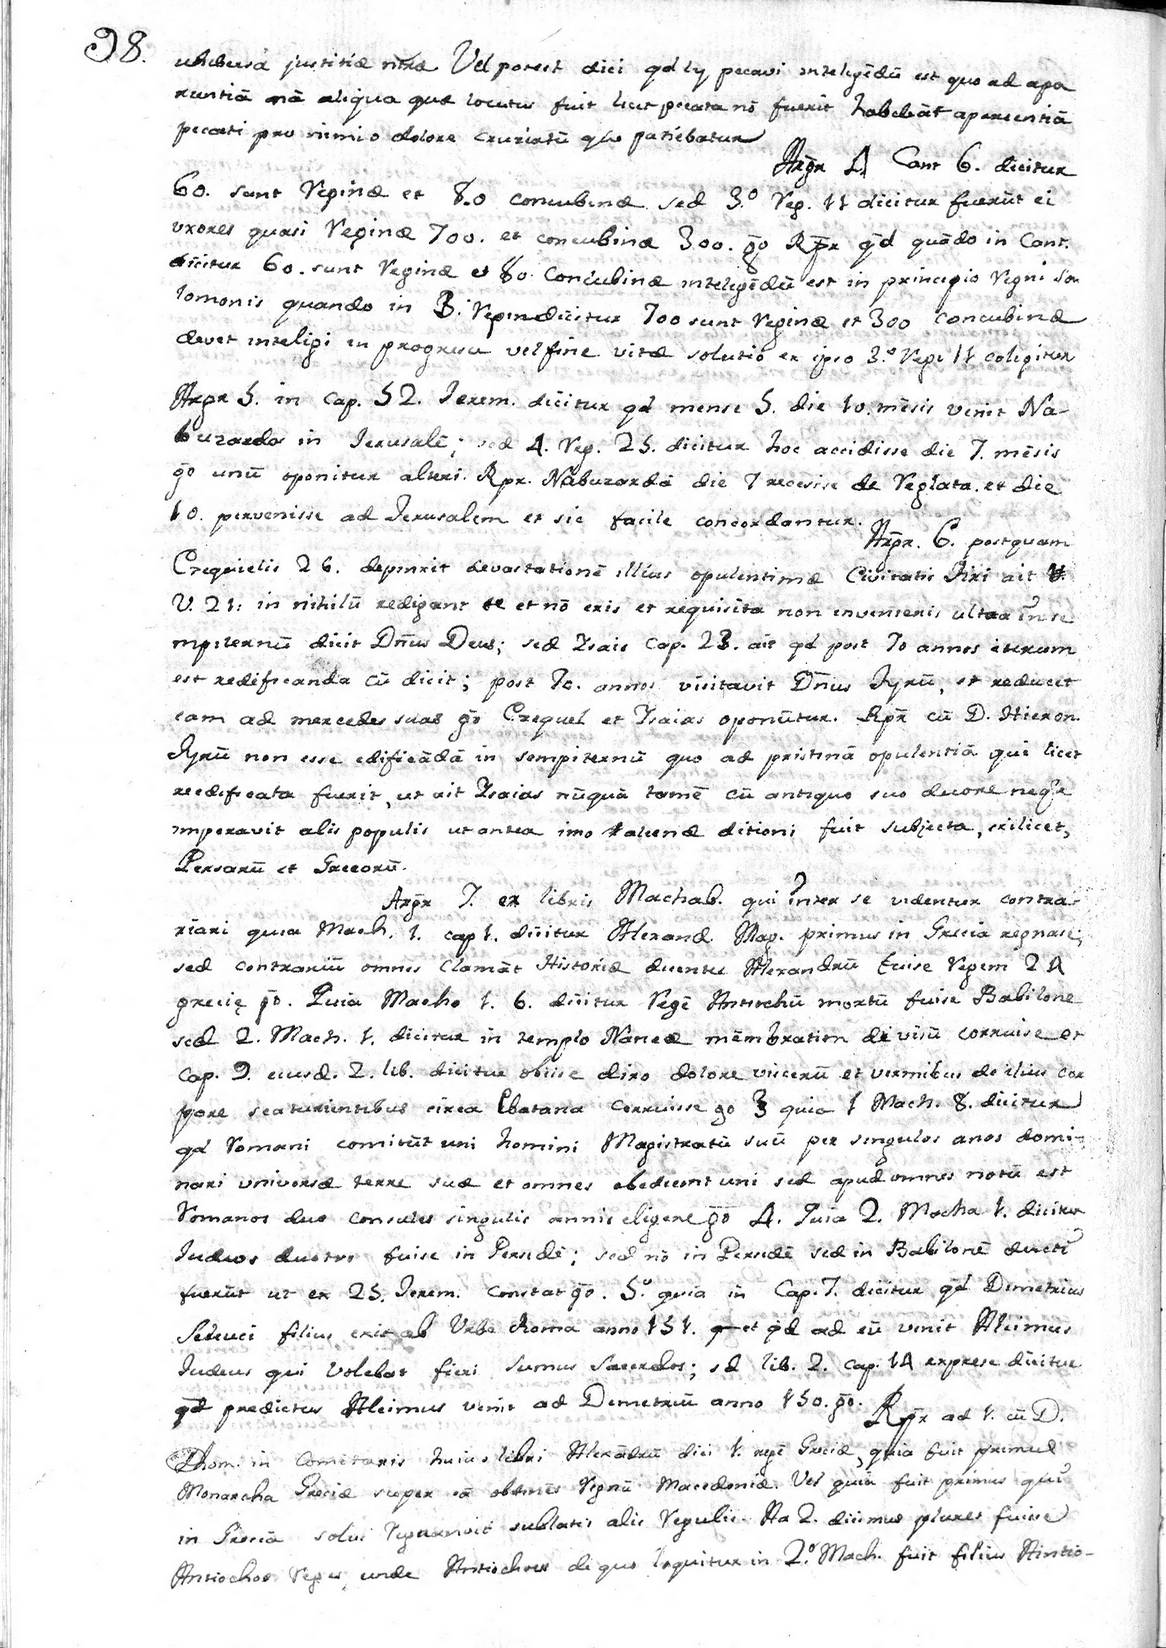 98.
justitiæ nr̃æ Vel potest dici qd ly pecavi inteligẽdũ est quo ad apa
rentiã nã aliqua quæ locutus fuit licet pecata nõ fuerit habebãt aparentiã
pecati pro nimio dolore cruziatũ quo patiebatur
Argr 4. Cant 6. dicitur
60. sunt Reginæ et 80 concubinæ sed 3.º Reg. 11 dicitur fuerũt ei
uxores quasi Reginæ 700. et concubinæ 300. gõ Rp̃r qd quãdo in Cant.
dicitur 60. sunt Reginæ et 80. Concubinæ inteligẽdũ est in principio Regni Sa
lomonis quando in 3. Reg. dicitur 700 sunt Reginæ et 300 concubinæ
devet inteligi in progresu vel fine vitæ solutio ex ipso 3.º Reg. 11 coligitur
Argr 5. in cap. 52. Jerem. dicitur qd mense 5. die 10. mẽsis venit Na-
buzarda in Jerusalẽ; sed 4. Reg. 25. dicitur hoc accidisse die 7. mẽsis
gõ unũ oponitur alteri. Rpr. Nabuzardã die 7 recesise de Reglata. et die
10. pervenisse ad Jerusalem et sic facile concordantur.
Argr. 6. postquam
Ezequielis 26. depinxit devastationẽ illius opulentimæ Civitatis Tiri ait
V. 21: in nihilũ redigant te et nõ eris et requisita non invenieris ultra in se
mpiternũ dicit Dñus Deus; sed Isaie cap. 23. ait qd post 70 annos iterum
est redificanda cũ dicit; post 70. annos visitavit Dñius Tyrũ, et reducet
eam ad mercedes suas gõ Ezequel et Isaias oponũtur. Rp̃r cũ D. Hieron.
Tyrũ non esse edificãdã in sempiternũ quo ad pristinã opulentiã qui licet
reedificata fuerit, ut ait Isaias nũquã tamẽ cũ antiquo suo decore neq̃
imperavit aliis populis ut antea imo alienæ ditioni fuit subjecta, scilicet,
Persarũ et Grecorũ.
Argr 7. ex libris Machab. qui inter se videntur contra-
riari quia Mach. 1. cap 1. dicitur Alexand. Mag. primus in Grecia regnase;
sed contrariũ omnes clamãt Historiæ dicentes Alexandrũ fuise Regem 24
greciȩ gõ. Quia Macho 1. 6. dicitur Regẽ Antiochũ mortũ fuise Babilone
sed 2. Mach. 1. dicitur in templo Naneæ mẽmbratim divisũ corruise et
Cap. 9. eiusd. 2. lib. dicitur obiise diro dolore viscerũ et vermibus de eius cor
pore scaturientibus circa Ebatana corruisse gõ 3 quia 1 Mach. 8. dicitur
qd Romani comitũt uni homini Magistratũ suũ per singulos anos domi-
nari universæ terre suæ et omnes obediunt uni sed apud omnes notũ est
Romanos duo consules singulis annis eligere gõ 4. Quia 2. Macha 1. dicitur
Judæos ductos fuise in Persidẽ; sed nõ in Persidẽ sed in Babilonẽ ducti
fuerũt ut ex 25. Jerem. constat gõ. 5.º quia in Cap. 7. dicitur qd Demetrius
Seleuci filius exit ab Urbe Roma anno 151. et qd ad eũ venit Alcimus
Judeus qui volebat fieri sumus Sacerdos; sd lib. 2. cap. 14 exprese dicitur
qd predictus Alcimus venit ad Demetriũ anno 150. gõ. Rp̃r ad 1. cũ D.
Thom. in Comẽtariis huius libri Alexãdrũ dici 1. regẽ Greciæ, quia fuit primus
Monarcha Greciæ super eã obtinẽs Regnũ Macedoniæ. Vel quia fuit primus qui
in Greciã solus Regnavit sublatis aliis Regulis. Ad 2. dicimus plures fuise
Antiochos Reges, unde Antiochus de quo loquitur in 2.º Mach. fuit filius Antio-